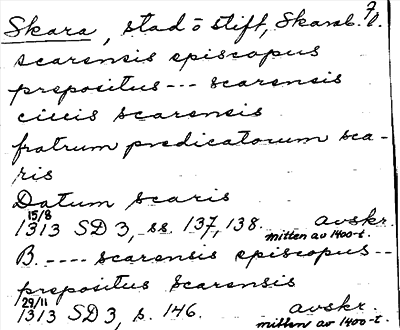 Skara, stad o stift, Skarab. l.
scarensis episcopus
prepositus --- scarensis
ciuis scarensis
fratrum predicatorum sca-
ris
Datum scaris
15/8
1313 SD 3, ss. 137, 138. avskr.
mitten av 1400-t.
B. ---- scarensis episcopus --
prepositus scarensis
29/11
1313 SD 3, s. 146. avskr.
mitten av 1400-t.